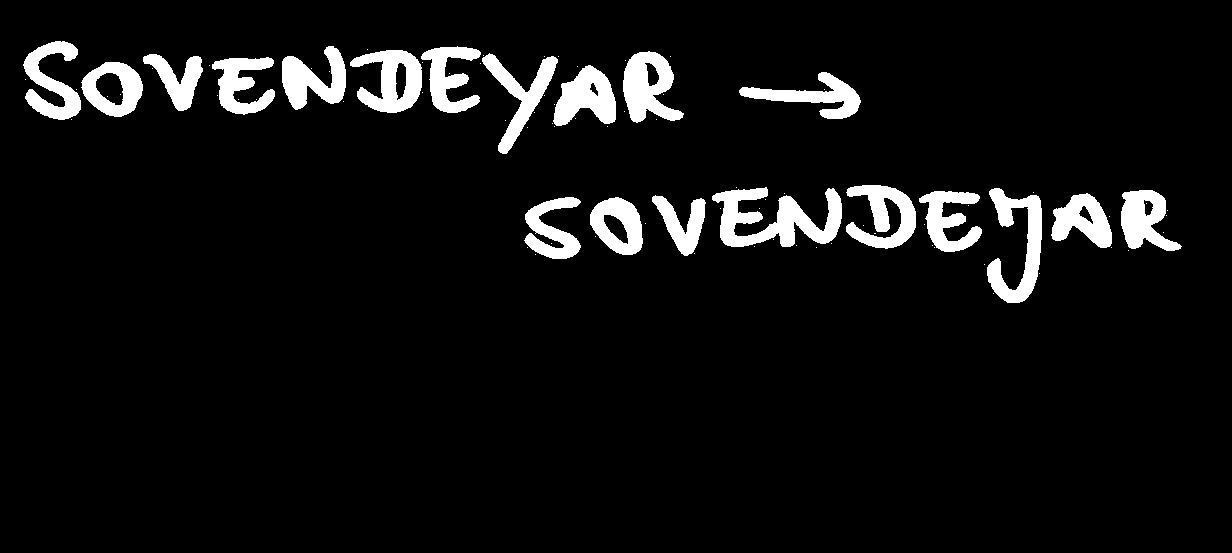 SOVENDEYAR →
SOVENDEJAR